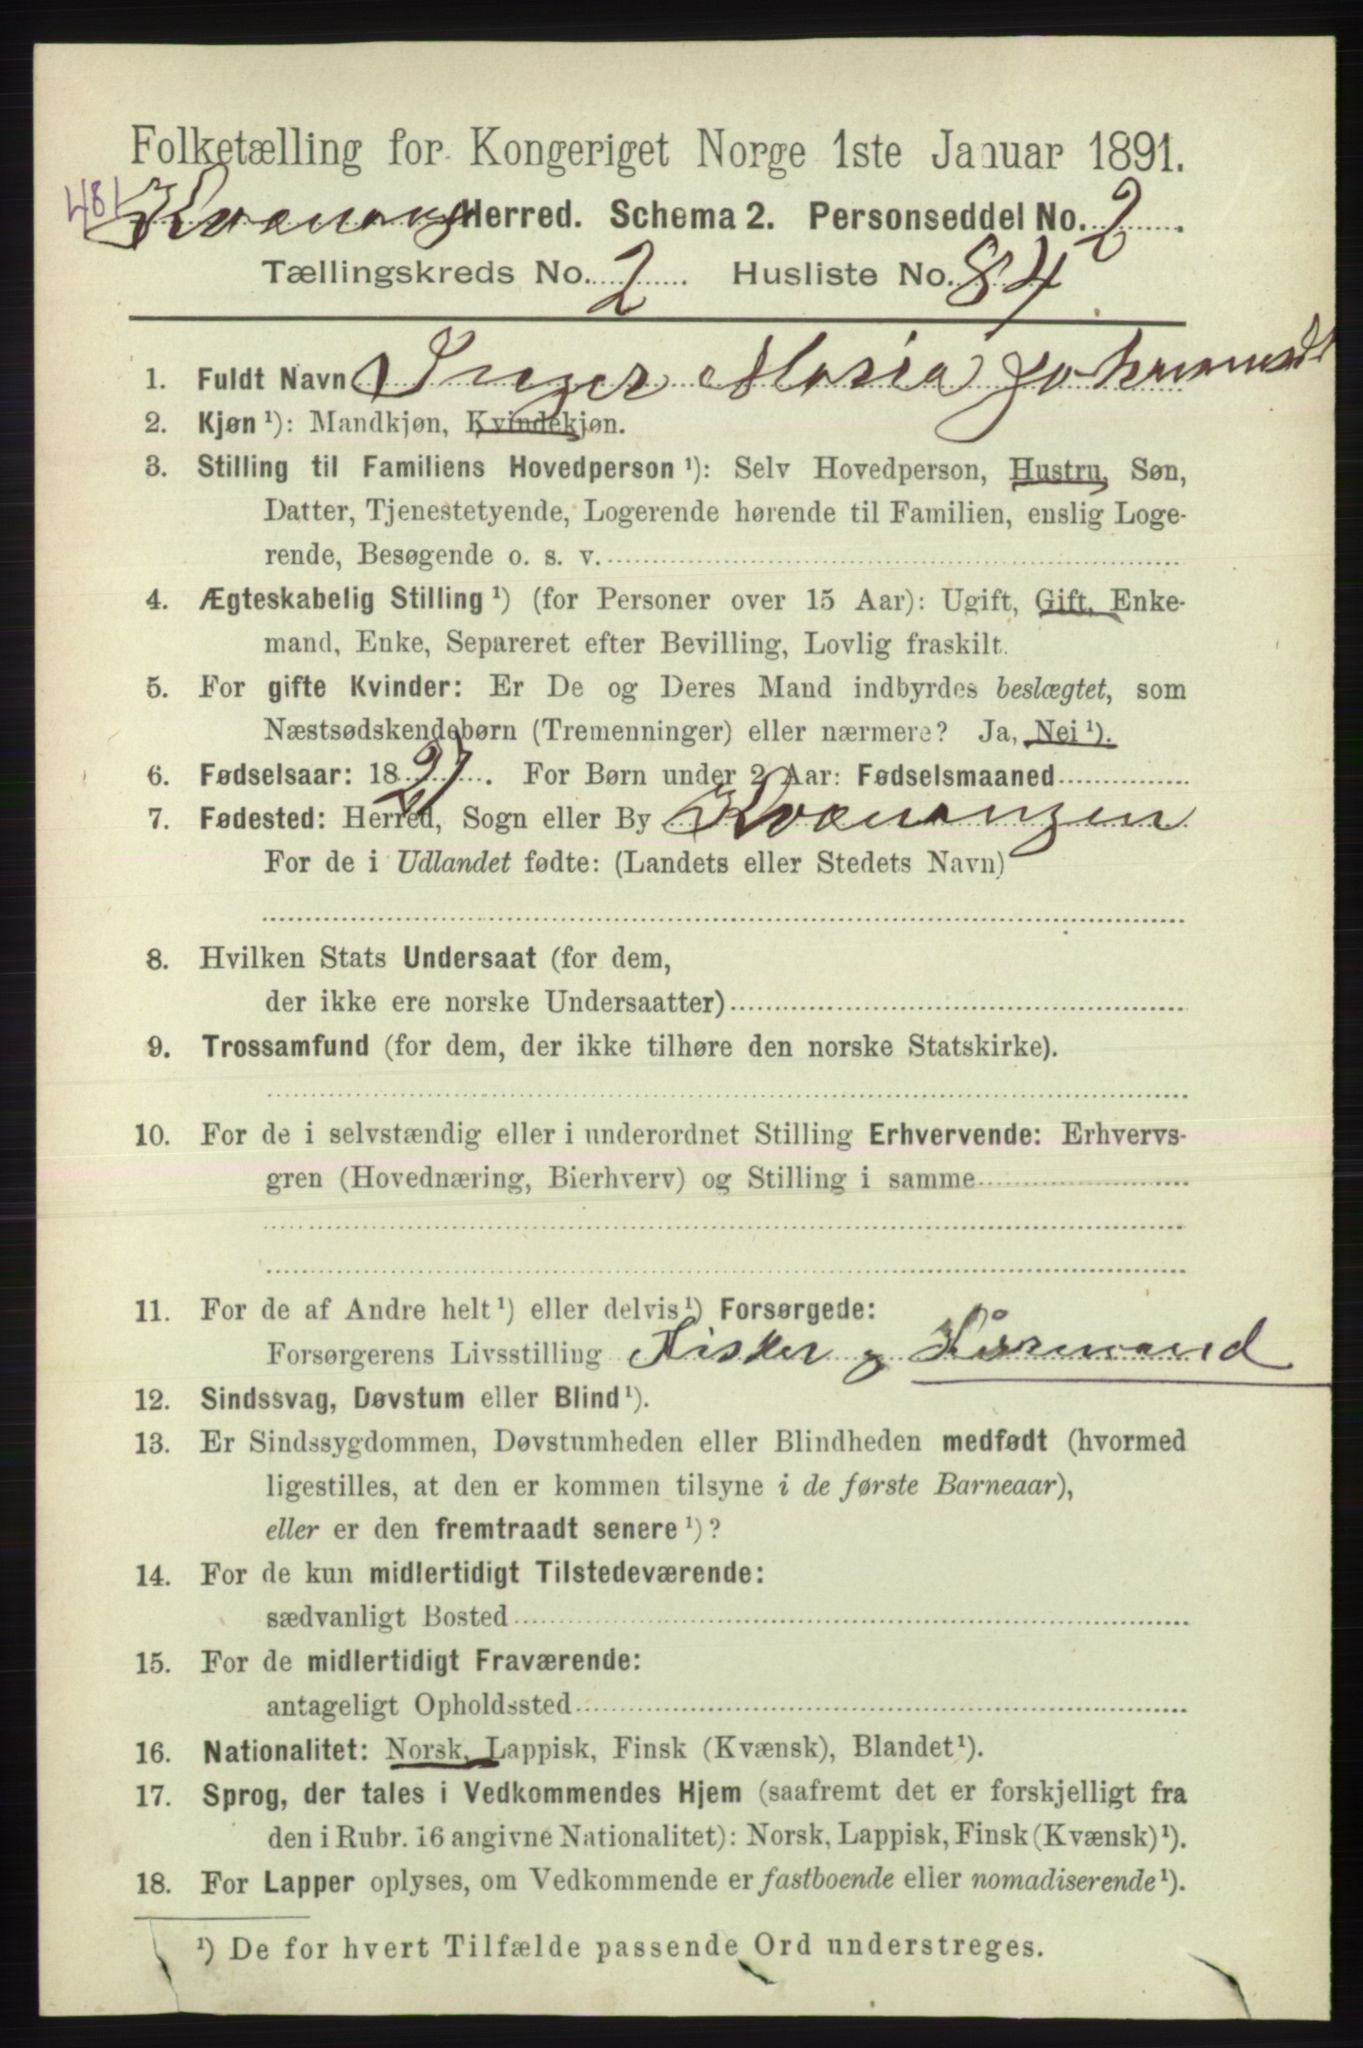 Folketælling for Kongeriget Norge 1ste Januar 1891.
481
Kvænang Herred. Schema 2. Personseddel No. 2
Tællingskreds No. 2 Husliste No. 84
1. Fuldt Navn Inger Maria Johannesdt
2. Kjøn ¹): Mandkjøn, Kvindekjøn.
3. Stilling til Familiens Hovedperson ¹): Selv Hovedperson, Hustru, Søn,
Datter, Tjenestetyende, Logerende hørende til Familien, enslig Loge-
rende, Besøgende o. s. v.
4. Ægteskabelig Stilling ¹) (for Personer over 15 Aar): Ugift, Gift, Enke-
mand, Enke, Separeret efter Bevilling, Lovlig fraskilt.
5. For gifte Kvinder: Er De og Deres Mand indbyrdes beslægtet, som
Næstsødskendebørn (Tremenninger) eller nærmere? Ja, Nei ¹).
6. Fødselsaar: 1827. For Børn under 2 Aar: Fødselsmaaned
7. Fødested: Herred, Sogn eller By Kvænangen
For de i Udlandet fødte: (Landets eller Stedets Navn)
8. Hvilken Stats Undersaat (for dem,
der ikke ere norske Undersaatter)
9. Trossamfund (for dem, der ikke tilhøre den norske Statskirke).
10. For de i selvstændig eller i underordnet Stilling Erhvervende: Erhvervs-
gren (Hovednæring, Bierhverv) og Stilling i samme
11. For de af Andre helt ¹) eller delvis ¹) Forsørgede:
Forsørgerens Livsstilling Fisker g
12. Sindssvag, Døvstum eller Blind ¹).
13. Er Sindssygdommen, Døvstumheden eller Blindheden medfødt (hvormed
ligestilles, at den er kommen tilsyne i de første Barneaar),
eller er den fremtraadt senere ¹)?
14. For de kun midlertidigt Tilstedeværende:
sædvanligt Bosted
15. For de midlertidigt Fraværende:
antageligt Opholdssted
16. Nationalitet: Norsk, Lappisk, Finsk (Kvænsk), Blandet ¹).
17. Sprog, der tales i Vedkommendes Hjem (saafremt det er forskjelligt fra
den i Rubr. 16 angivne Nationalitet): Norsk, Lappisk, Finsk (Kvænsk) ¹).
18. For Lapper oplyses, om Vedkommende er fastboende eller nomadiserende ¹).
¹) De for hvert Tilfælde passende Ord understreges.